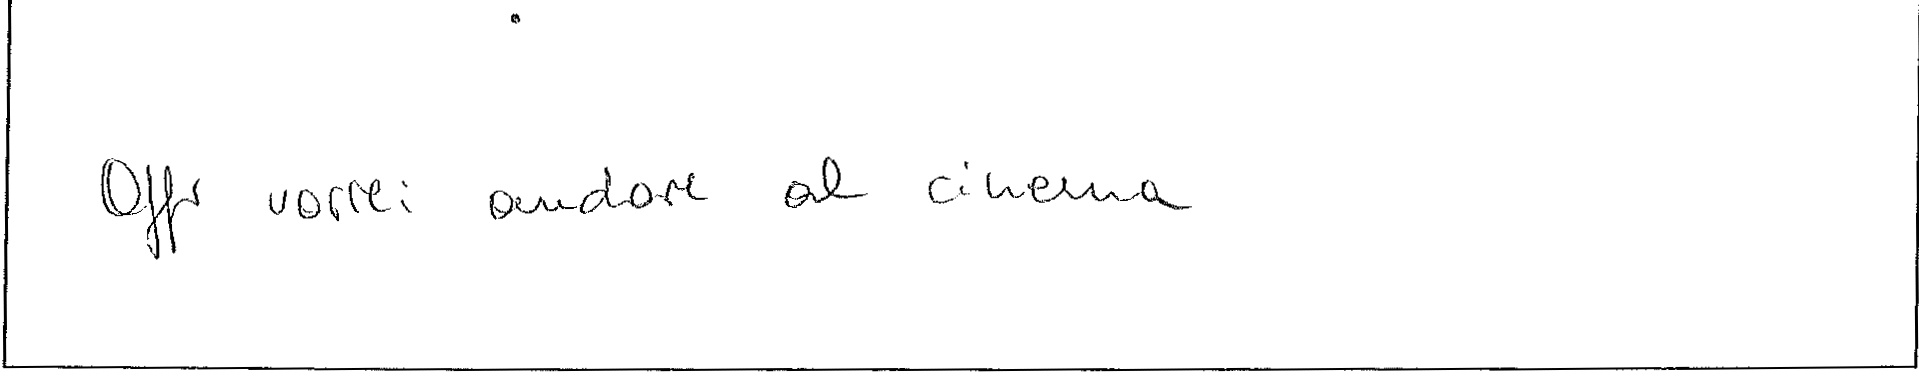 vorrei andare al cinema